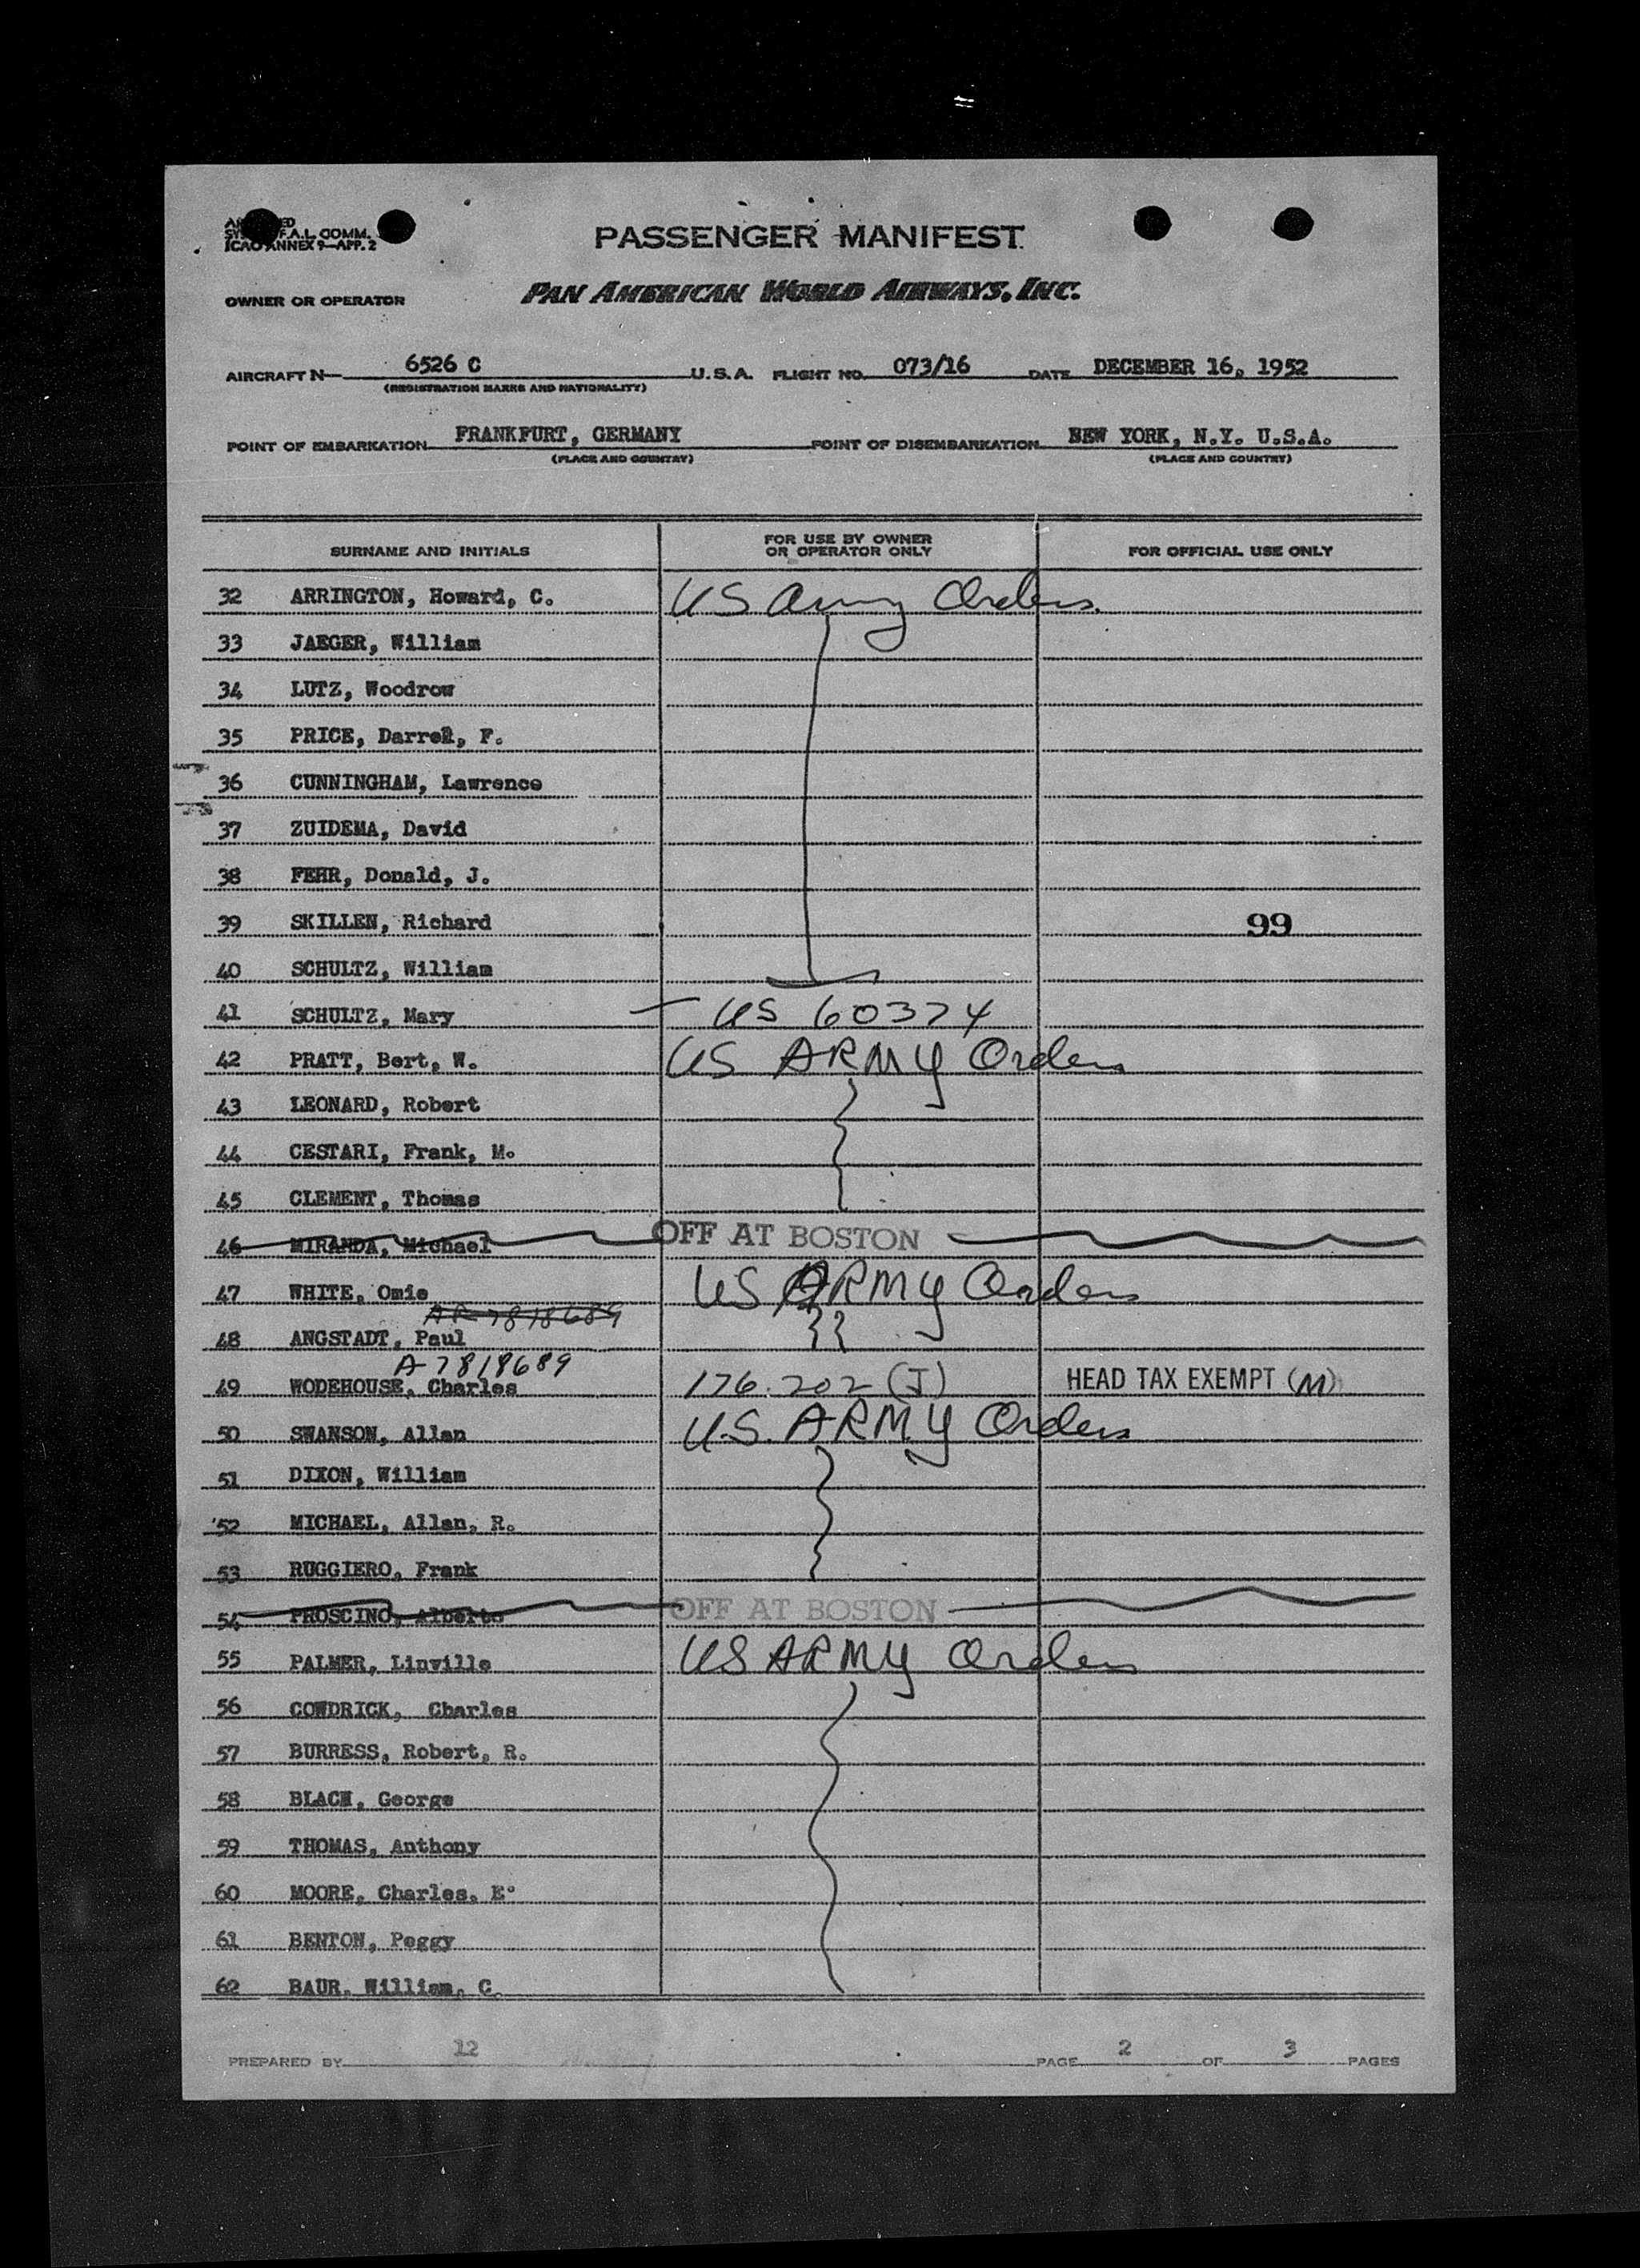 PASSENGER MANIFEST
F.A.L. COMM.
ICAO ANNEX 9—APP. 2
OWNER OR OPERATOR PAN AMERICAN WORLD AIRWAYS, INC.
AIRCRAFT N— 6526 C U.S.A. FLIGHT NO. 073/16 DATE DECEMBER 16, 1952
(REGISTRATION MARKS AND NATIONALITY)
POINT OF EMBARKATION FRANKFURT, GERMANY POINT OF DISEMBARKATION BEW YORK, N.Y. U.S.A.
(PLACE AND COUNTRY) (PLACE AND COUNTRY)
SURNAME AND INITIALS FOR USE BY OWNER OR OPERATOR ONLY FOR OFFICIAL USE ONLY
32 ARRINGTON, Howard, C. US Army Orders
33 JAEGER, William
34 LUTZ, Woodrow
35 PRICE, Darrel, F.
36 CUNNINGHAM, Lawrence
37 ZUIDEMA, David
38 FEHR, Donald, J.
39 SKILLEN, Richard 99
40 SCHULTZ, William
41 SCHULTZ, Mary — US 60374
42 PRATT, Bert, W. US ARMY Orders
43 LEONARD, Robert
44 CESTARI, Frank, M.
45 CLEMENT, Thomas
46 MIRANDA, Michael OFF AT BOSTON
47 WHITE, Omie US ARMY Orders
AR 7818689
48 ANGSTADT, Paul
A-7818689
49 WODEHOUSE, Charles 176.202 (J) HEAD TAX EXEMPT (M)
50 SWANSON, Allan U.S. ARMY Orders
51 DIXON, William
52 MICHAEL, Allan, R.
53 RUGGIERO, Frank
54 PROSCINO, Alberto OFF AT BOSTON
55 PALMER, Linville US ARMY Orders
56 COWDRICK, Charles
57 BURRESS, Robert, R.
58 BLACH, George
59 THOMAS, Anthony
60 MOORE, Charles, E.
61 BENTON, Peggy
62 BAUR, William, C.
PREPARED BY 12 PAGE 2 OF 3 PAGES